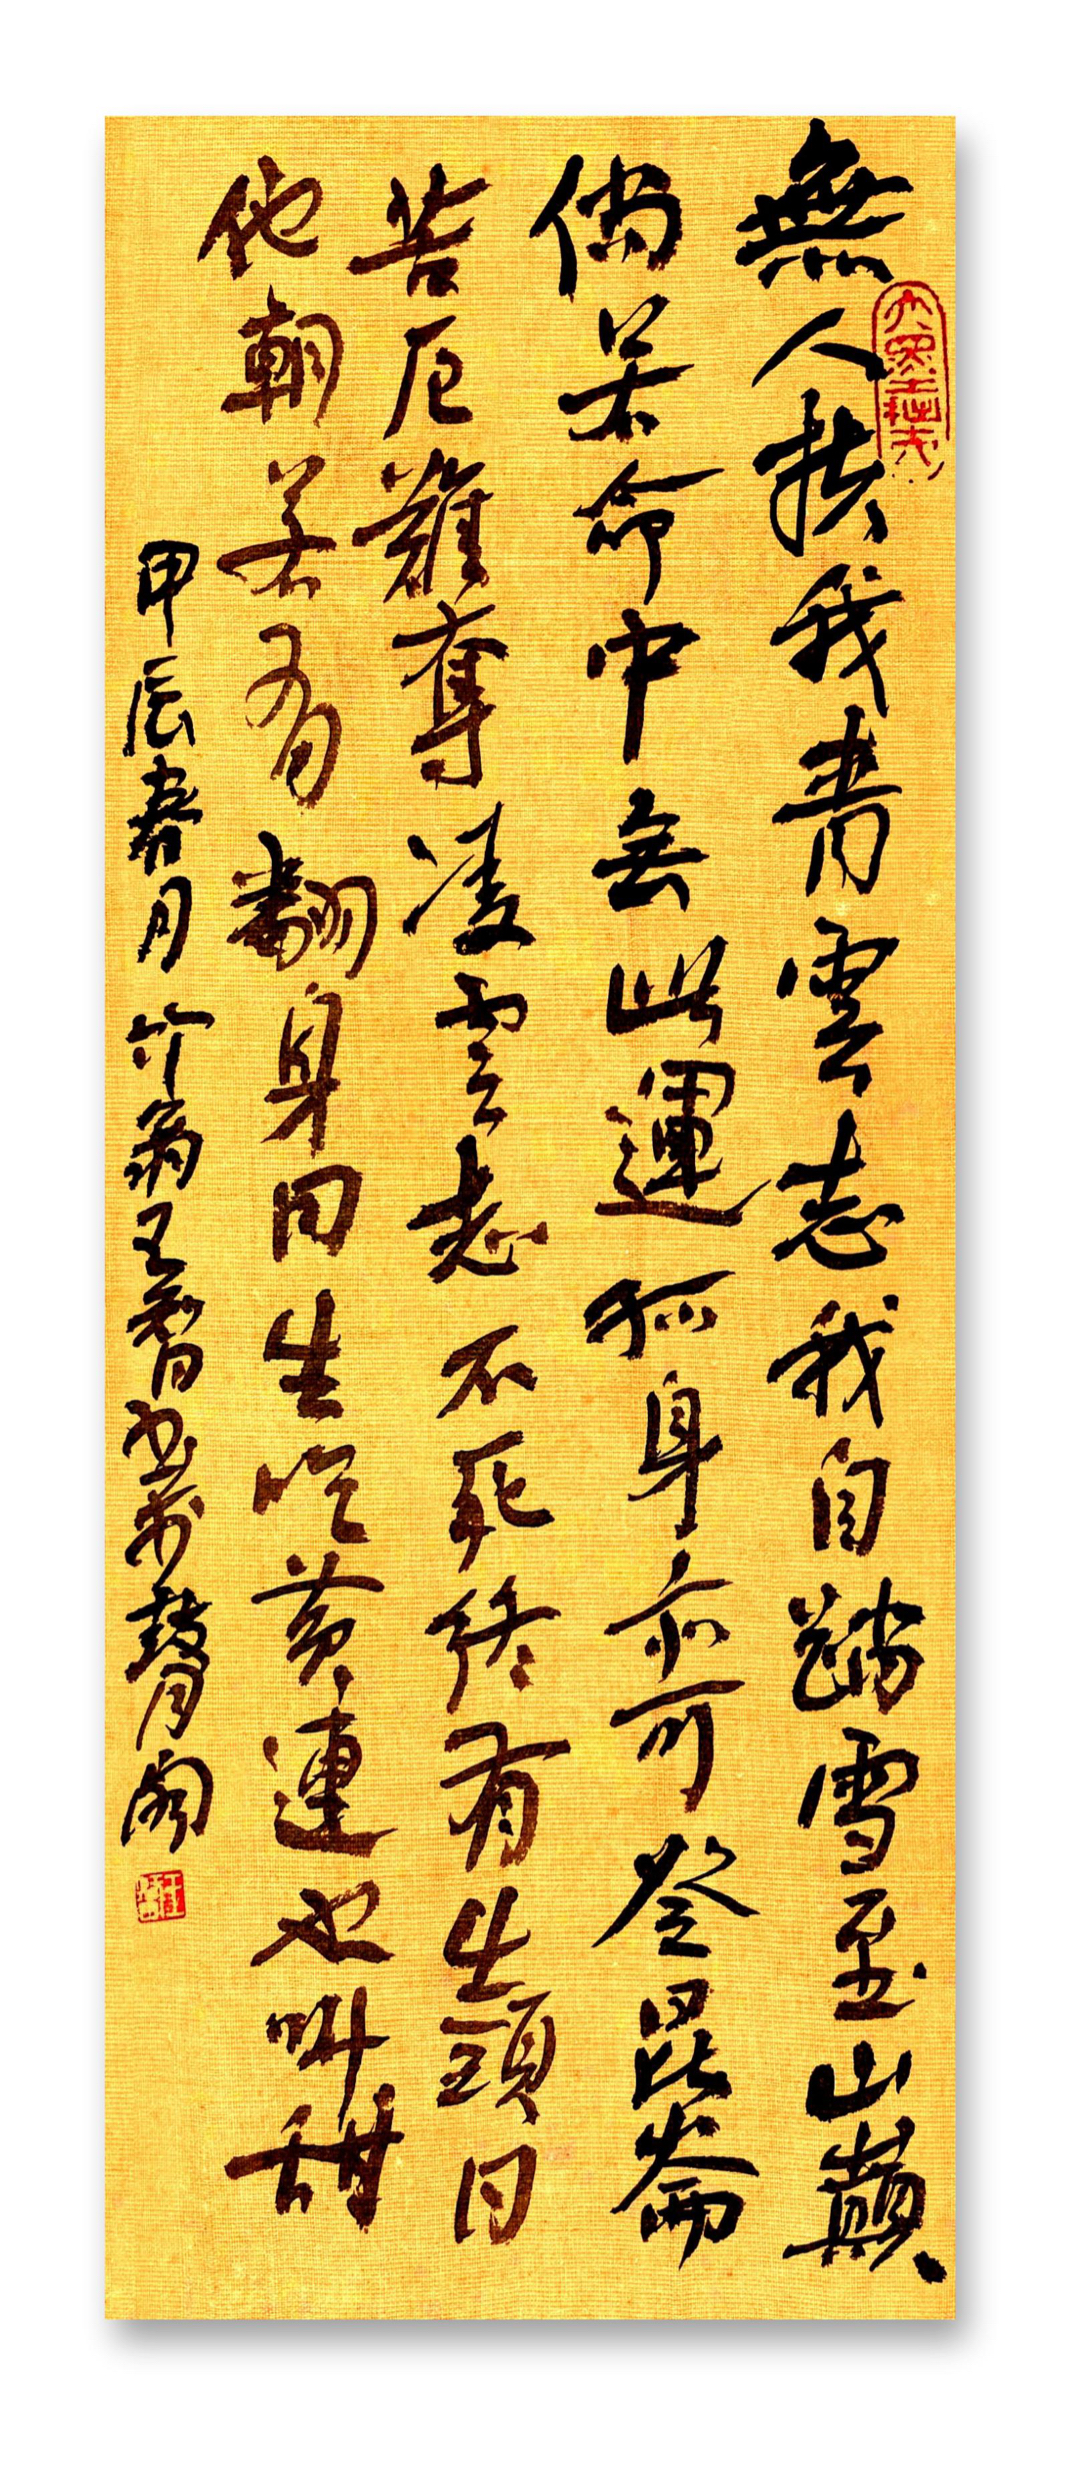 無人扶我青雲志我自踏雪至山巔
倘若命中無此運孤身亦可登昆崙
苦厄難奪凌雲志不死終有出頭日
他朝若有翻身日生吃黃連也叫甜
甲辰春月竹翁王智書於鼓月閣